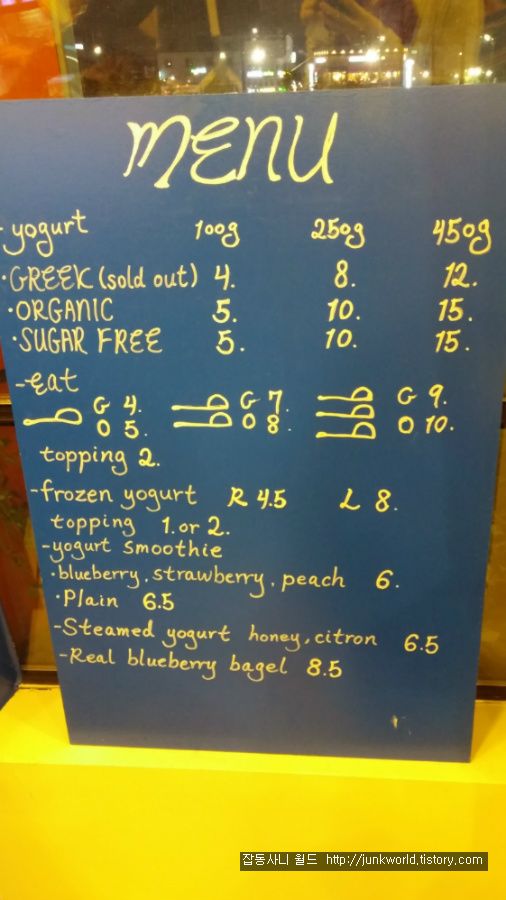 MENU
-yogurt 100g 250g 450g
·GREEK (sold out) 4. 8. 12.
·ORGANIC 5. 10. 15.
·SUGAR FREE 5. 10. 15.
-eat
G 4. G 7. G 9.
O 5. O 8. O 10.
topping 2.
-frozen yogurt R 4.5 L 8.
topping 1. or 2.
-yogurt smoothie
·blueberry, strawberry, peach 6.
·Plain 6.5
-Steamed yogurt honey, citron 6.5
-Real blueberry bagel 8.5
잡동사니 월드 http://junkworld.tistory.com